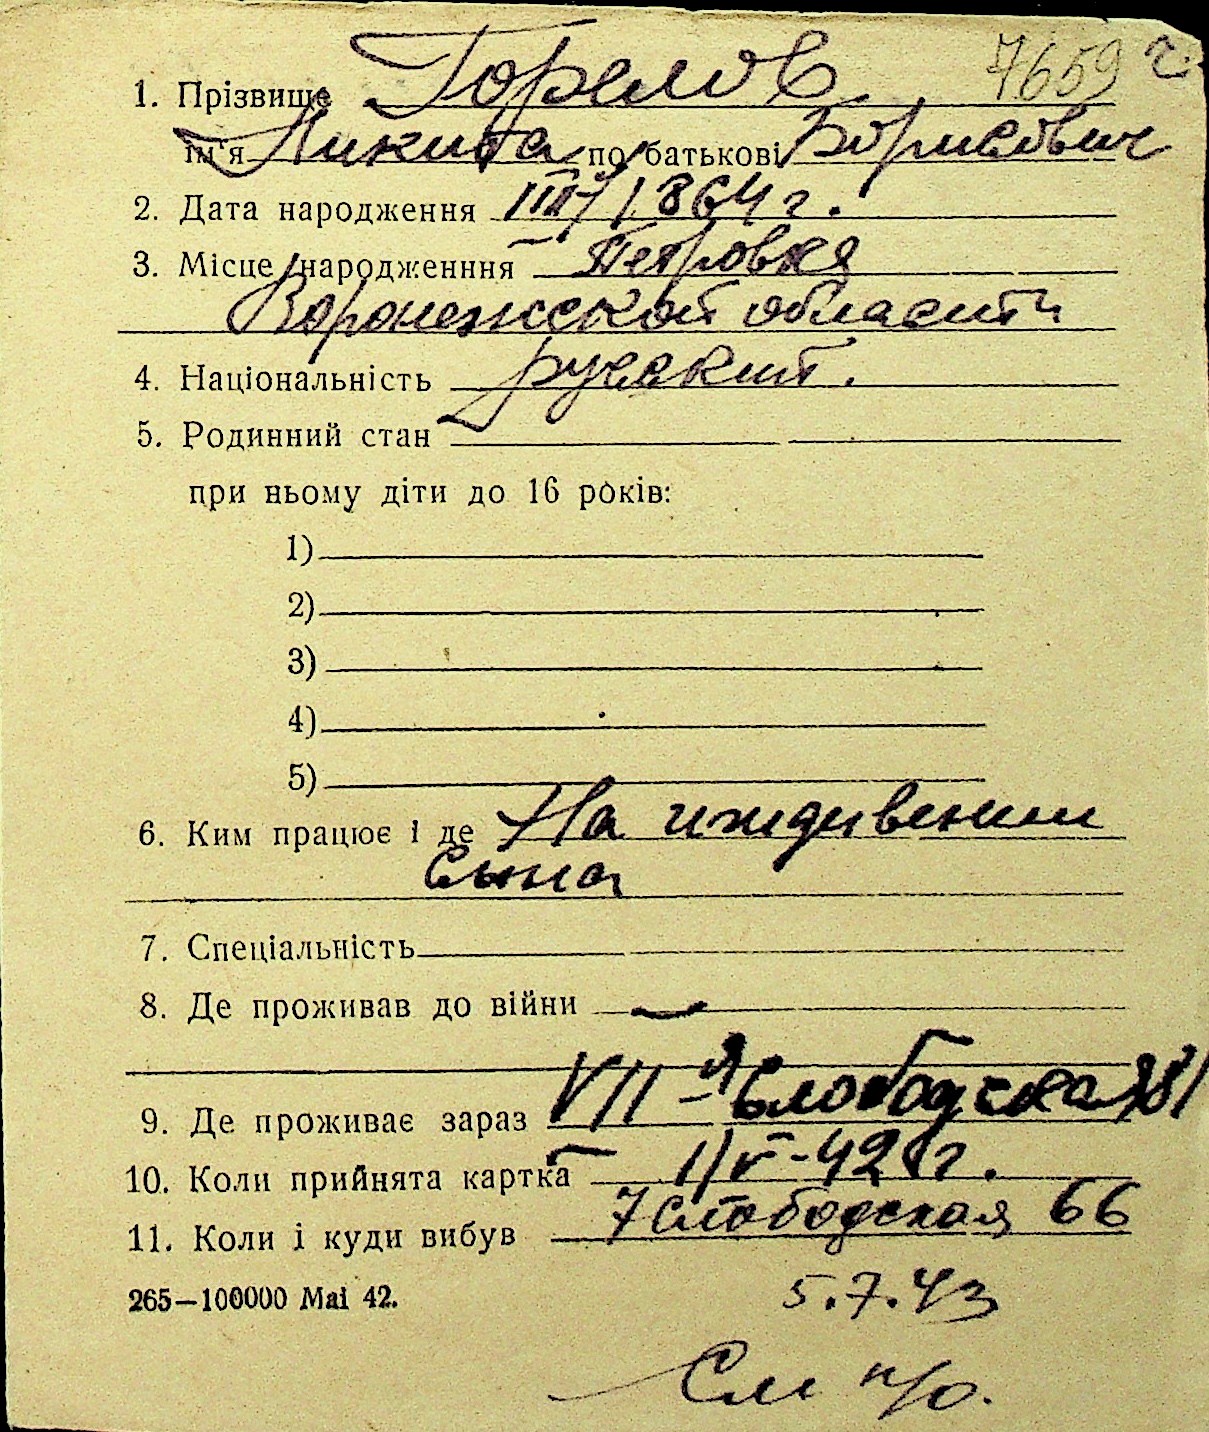 7659 г.
1. Прізвище Горелов
ім'я Никита по батькові Борисович
2. Дата народження III/1864 г.
3. Місце народженння Петровка
Воронежской области
4. Національність русский.
5. Родинний стан
при ньому діти до 16 років:
1)
2)
3)
4)
5)
6. Ким працює і де На иждивении
Сына
7. Спеціальність
8. Де проживав до війни —
9. Де проживає зараз VII-я Слободская 81
10. Коли прийнята картка 1/V-42 г.
11. Коли і куди вибув 7 Слободская 66
265—100000 Маі 42. 5.7.43
См н/о.